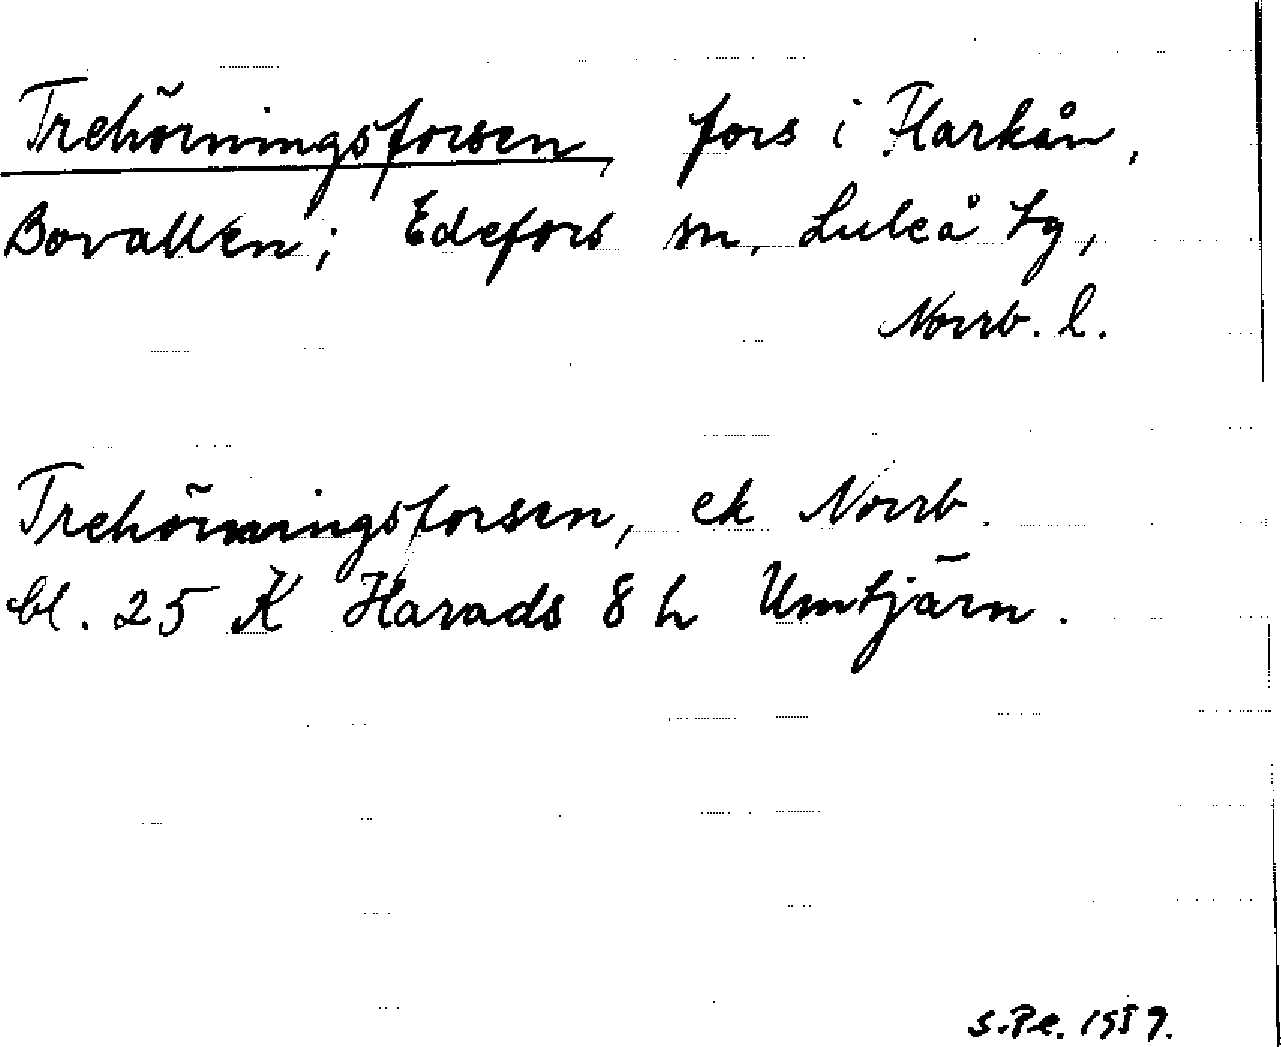 Trehörningsforsen, fors i Flarkån,
Bovallen; Edefors sn, Luleå tg,
Norrb. l.
Trehörningsforsen, ek Norrb.
bl. 25 K Harads 8 h Umtjärn.
S.Pe. 1957.